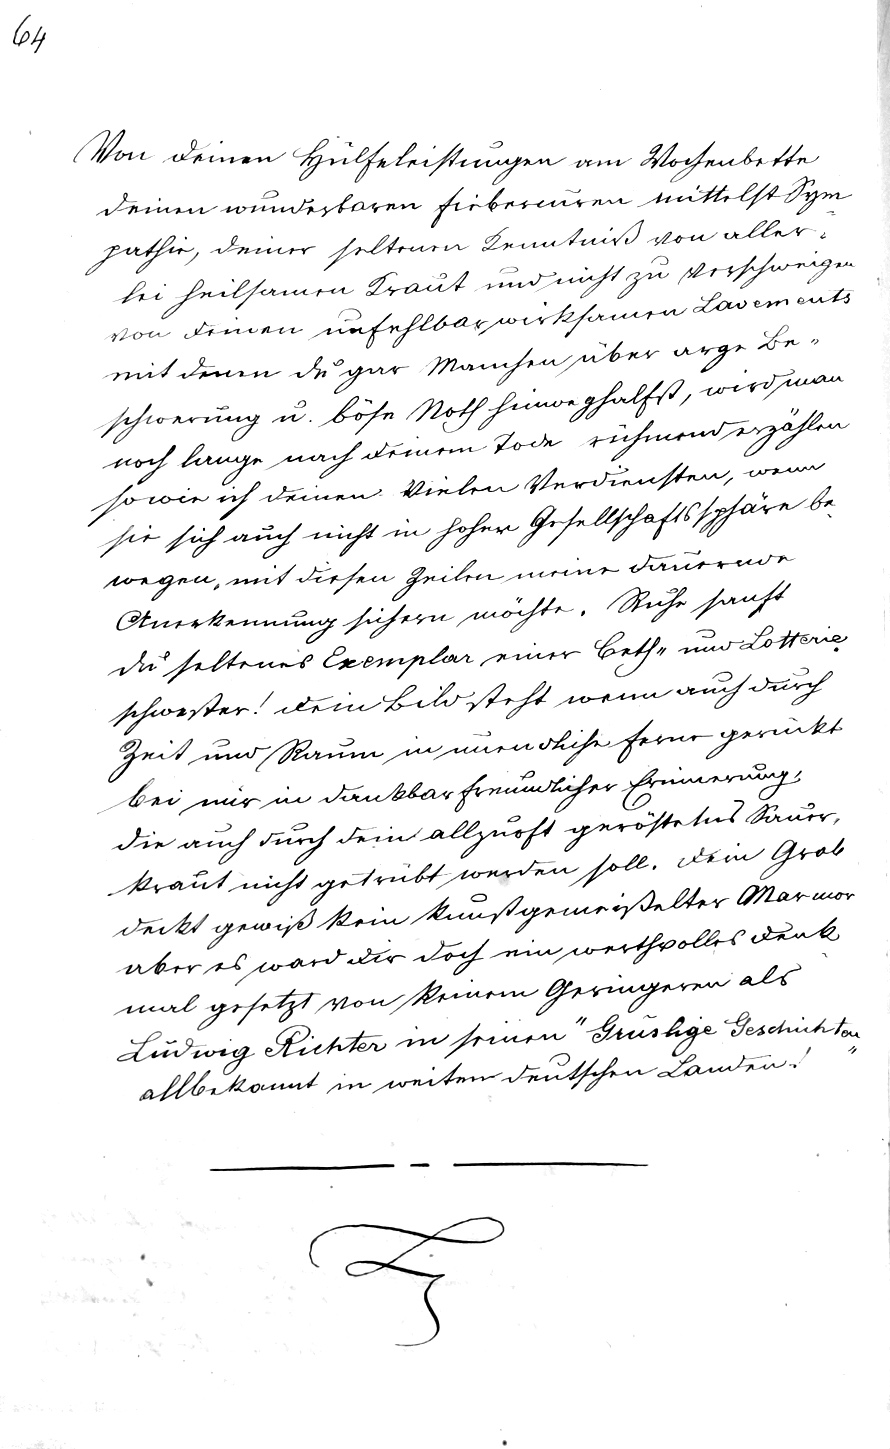 64
Von deinen Hülfeleistungen am Wochenbette
deinen wunderbaren Fiebercuren mittelst Sym
pathie, deiner seltenen Kenntniß von aller-
lei heilsamen Kraut und nicht zu verschweigen
von deinen unfehlbar wirksamen Lavements
mit denen du gar Manchen über arge Be-
schwerung u. böse Noth hinweghalfst, wird man
noch lange nach deinem Tode rühmend erzählen
so wie ich deinen vielen Verdiensten, wenn
sie sich auch nicht in hoher Gesellschaftssphäre be-
wegen, mit diesen Zeilen meine dauernde
Anerkennung sichern möchte. Ruhe sanft
du seltenes Exemplar einer Beth- und Lotterie-
schwester! Dein Bild steht wenn auch durch
Zeit und Raum in unendliche Ferne gerückt
bei mir in dankbar freundlicher Erinnerung,
die auch durch dein allzuoft geröstetes Sauer-
kraut nicht getrübt werden soll. Dein Grab
deckt gewiß kein kunstgemeißelter Marmor
aber es ward dir doch ein werthvolles Denk
mal gesetzt von keinem Geringeren als
Ludwig Richter in seinen "Gruslige Geschichten"
allbekannt in weiten deutschen Landen!